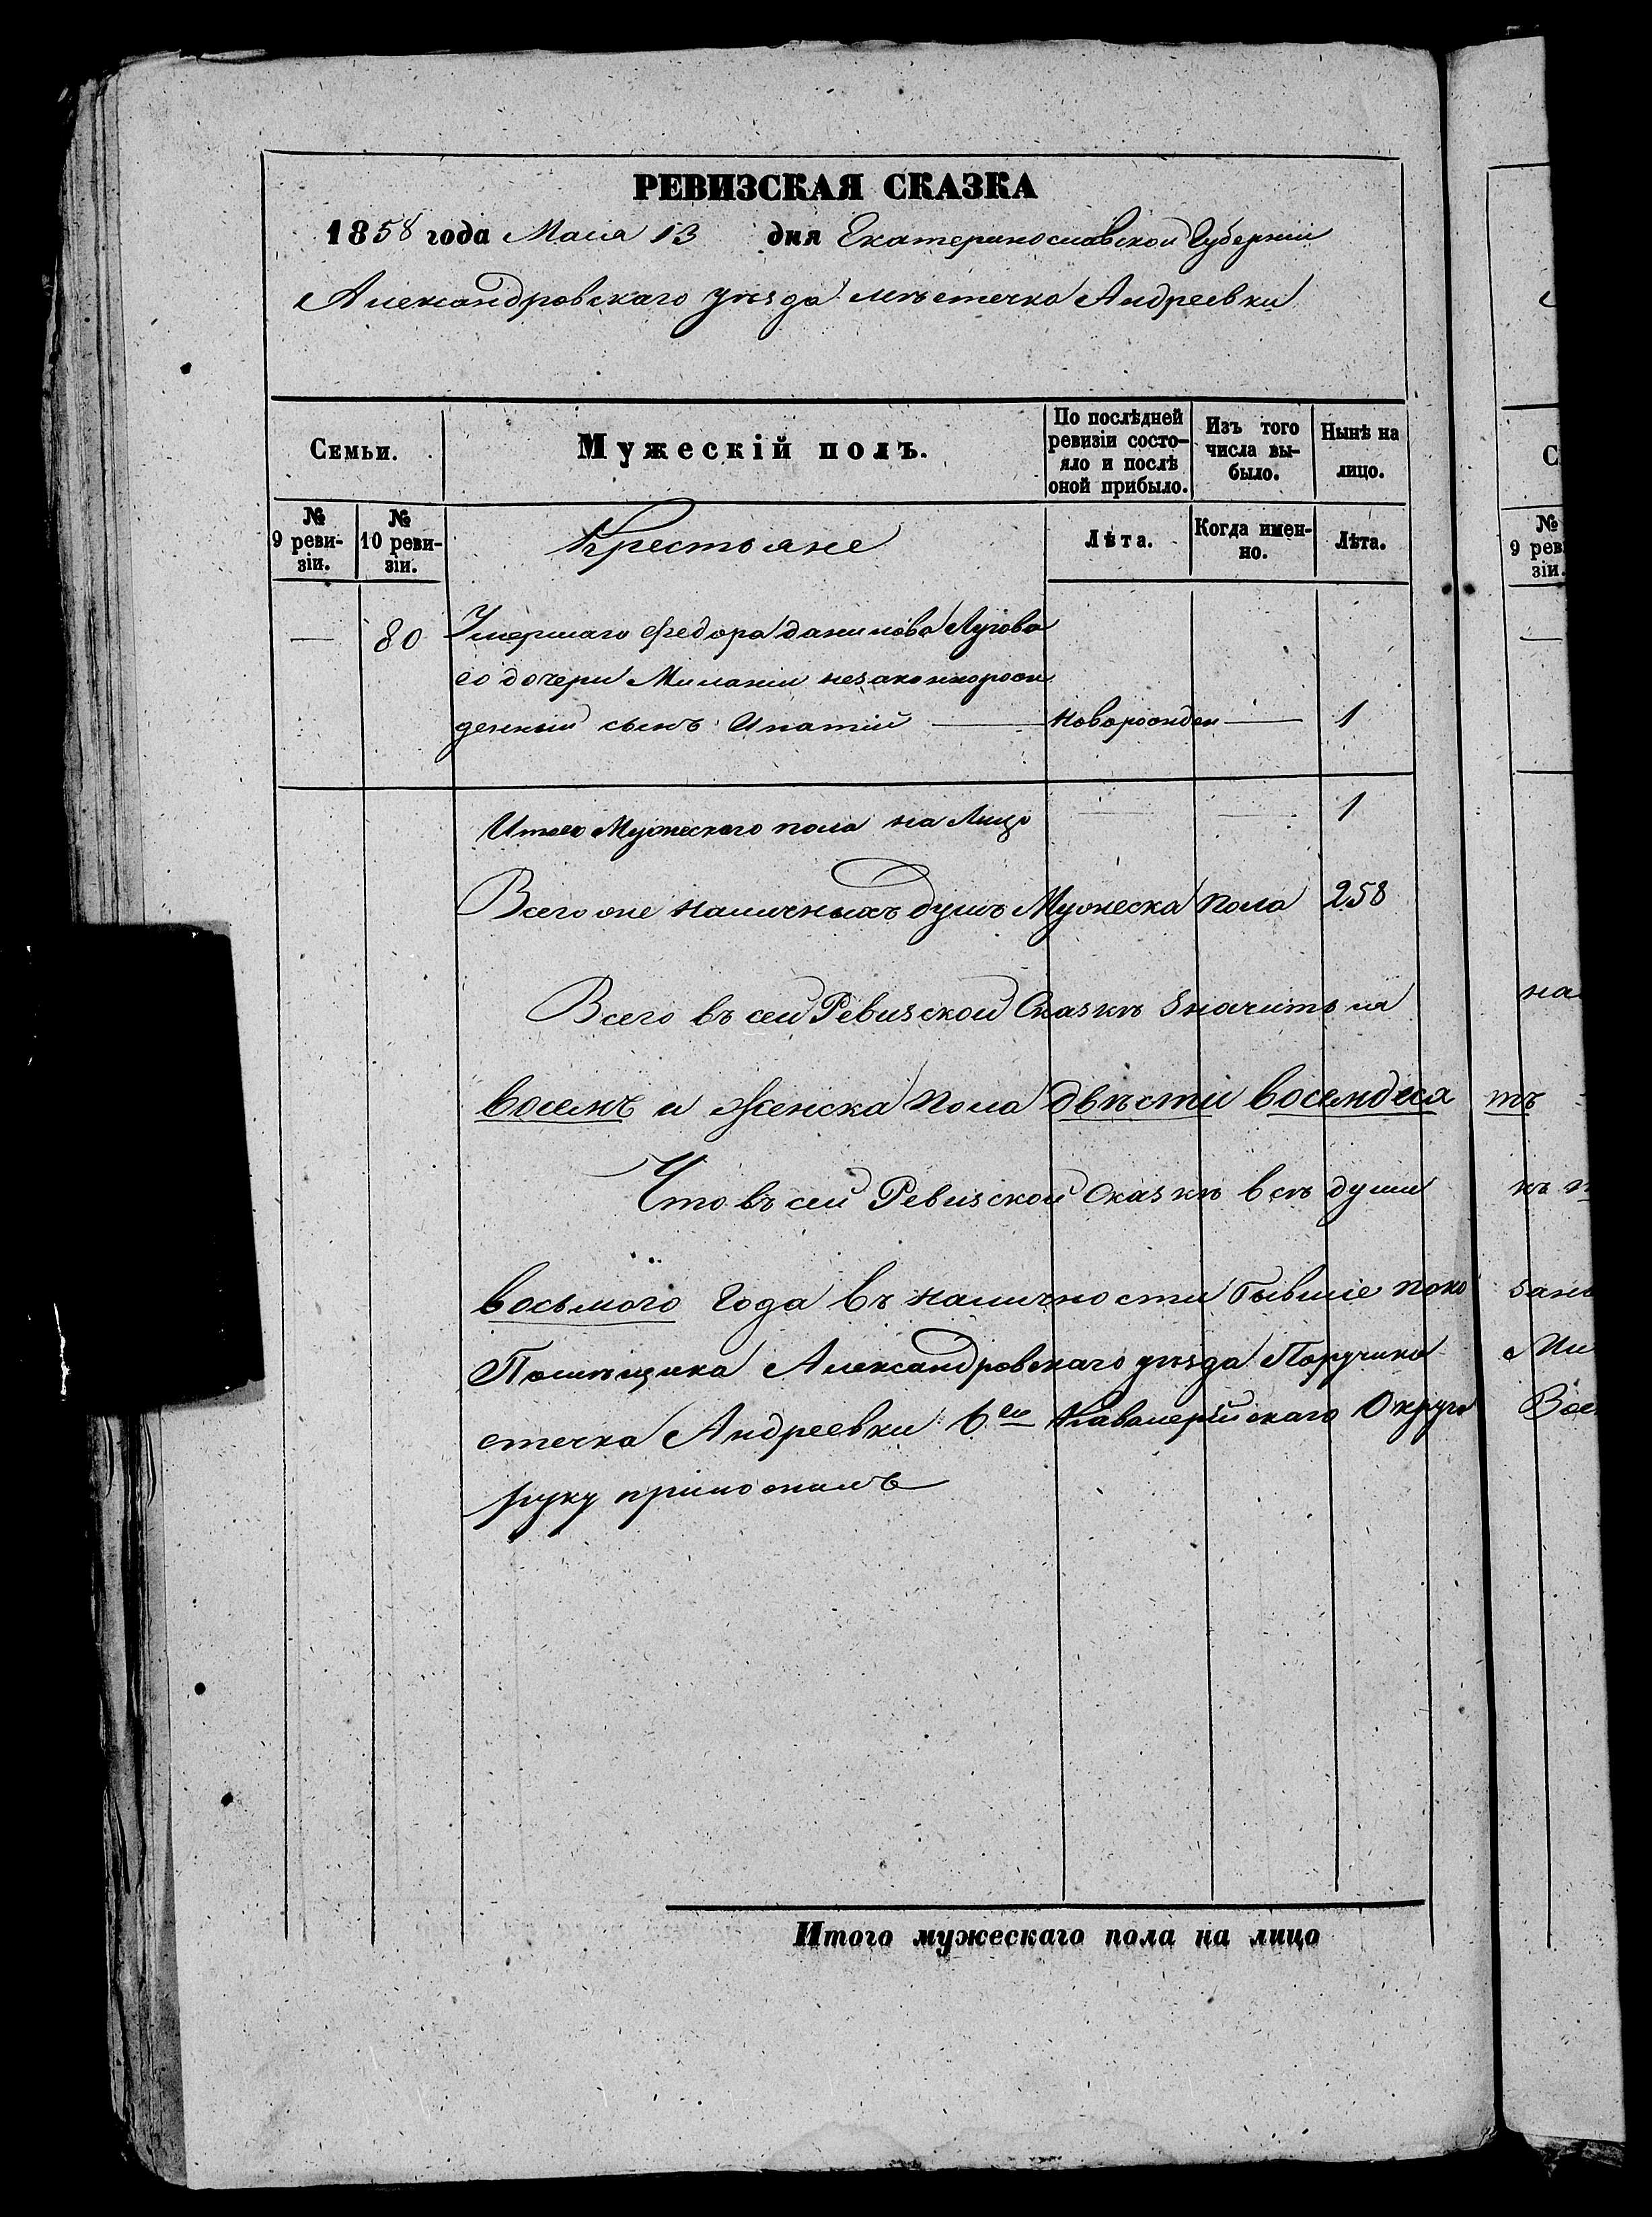 РЕВИЗСКАЯ СКАЗКА
1858 года Маия 13 дня Екатеринославской Губерніи
Александровскаго уѣзда мѣстечка Андреевки
Семьи.
Мужескій полъ.
По послѣдней ревизіи состо-яло и послѣ оной прибыло.
Изъ того числа вы-было.
Нынѣ на лицо.
№ 9 реви-зіи.
№ 10 реви-зіи.
Крестьяне
Лѣта.
Когда имен-но.
Лѣта.
— 80 Умершаго Федора данилова Лугова
его дочери Миланіи незаконнорож
денный сынъ Ипатій — новорожден — 1
Итого Мужескаго пола на Лицо — — 1
Всего же наличныхъ душъ Мужеска пола 258
Всего въ сей Ревизской Сказкѣ значитъся
восемь и Женска пола двѣсти восемдеся
Что въ сей Ревизской Сказкѣ всѣ души
восьмого года въ наличности бывшіе пока
Помѣщика Александровскаго уѣзда Поручика
стечка Андреевки 6го Кавалерійскаго Округа
руку приложилъ
Итого мужескаго пола на лицо
С
№
9 рев
зіи.
—
на
тъ
къ
зан
Ми
Вое